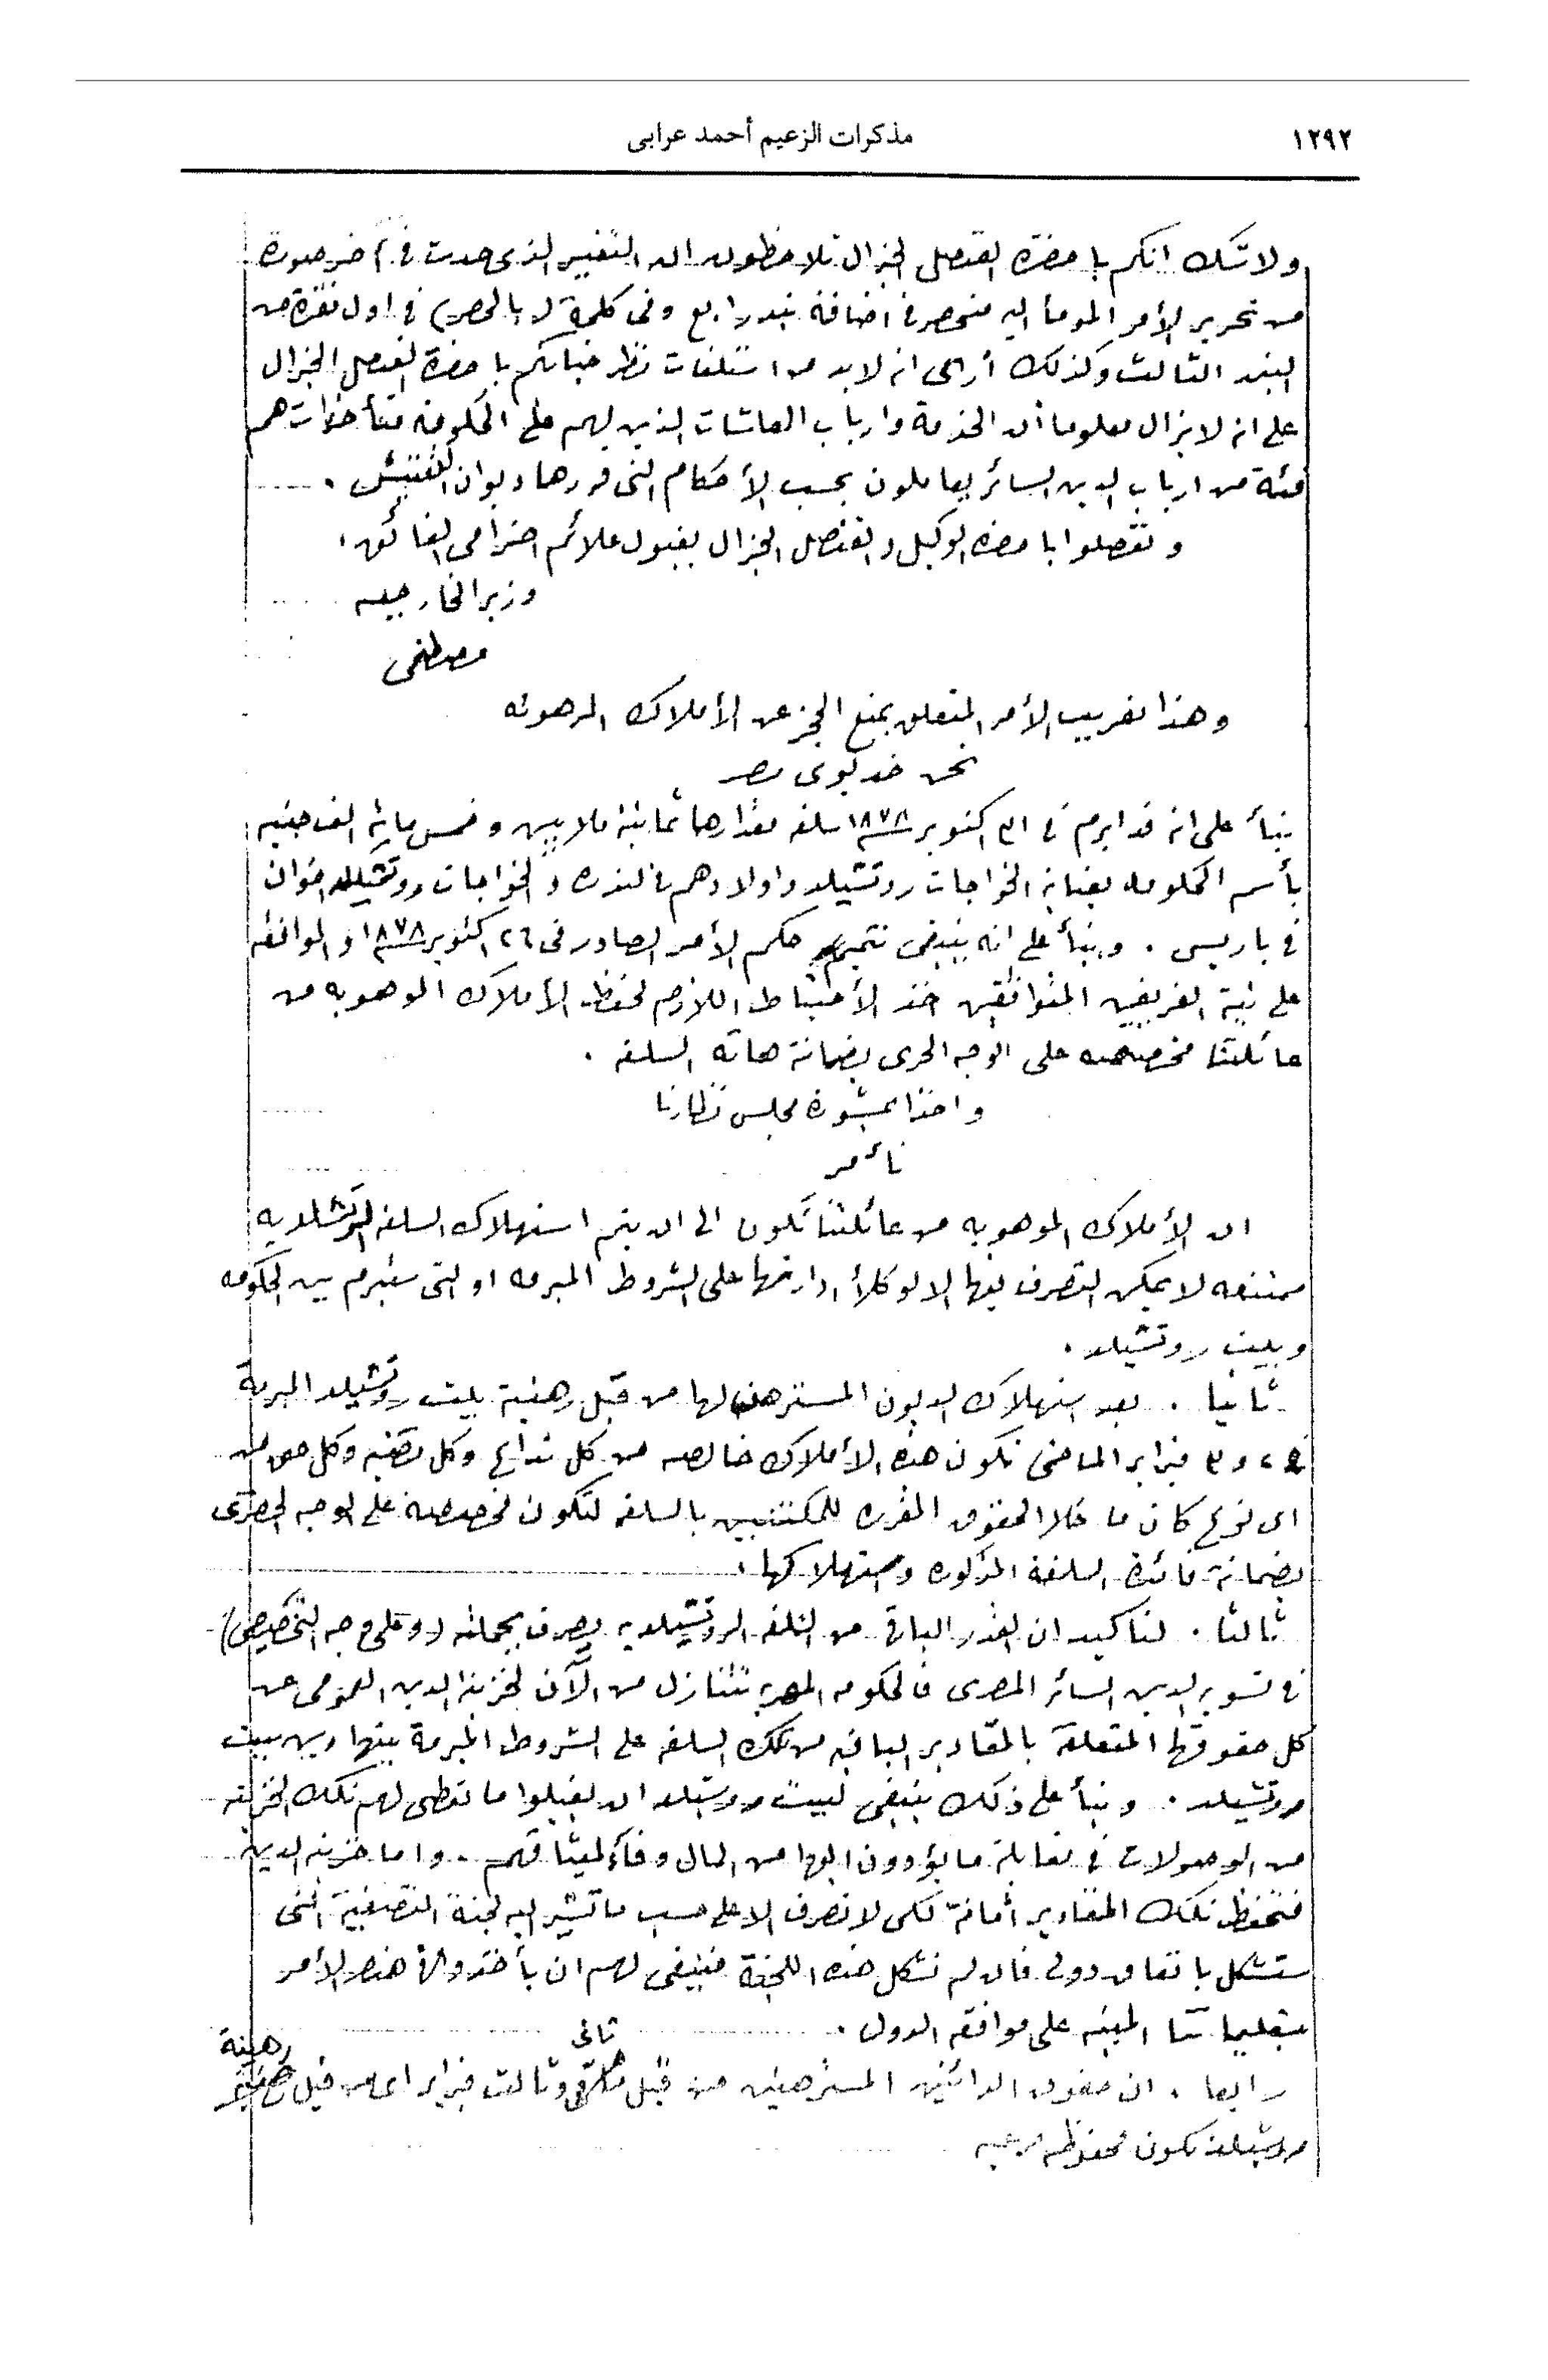 ١٢٩٢
مذكرات الزعيم أحمد عرابى
ولا شك انكم يا حضرة القنصل الجنرال تلاحظون ان التغيير الذى حدث فى آخر صورة
من تحرير الأمر المومأ اليه منحصر فى اضافة بند رابع وفى كلمة (بالحصر) فى اول فقرة من
البند الثالث وكذلك أرى انه لا بد من استلفات نظر جنابكم يا حضرة القنصل الجنرال
على انه لا يزال معلوما أن الخدمة وارباب المعاشات الذين لهم على الحكومة متأخرات هم
فئة من ارباب الدين السائر يعاملون بحسب الأحكام التى قررها ديوان التفتيش .
وتفضلوا يا حضرة الوكيل والقنصل الجنرال بقبول علائم احترامى الفائق .
وزير الخارجيه
مصطفى
وهذا تعريب الأمر المتعلق بمنع الحجز عن الأملاك المرهونه
نحن خديوى مصر
بنأ على انه قد ابرم فى ٣١ اكتوبر ١٨٧٨ سلفه مقدارها ثمانية ملايين وخمس ماية الف جنيه
بأسم الحكومه بعناية الخواجات روتشيلد واولادهم فى لندره والخواجات روتشيلد اخوان
فى باريس . وبنأ على انه ينبغى تتميم حكم الأمر الصادر فى ٢٦ اكتوبر ١٨٧٨ والموافقه
على نية الفريقين المتوافقين اخذ الأحتياط اللازم لحفظ الأملاك الموهوبه من
عائلتنا مخصصه على الوجه الحرى بضمانة هاته السلفه .
واخذا بمشورة مجلس نظارنا
نأمر
ان الأملاك الموهوبه من عائلتنا تكون الى ان يتم استهلاك السلفه الروتشلديه
ممتنعه لا يمكن التصرف فيها الا لوكلأ ادارتها على الشروط المبرمه او التى ستبرم بين الحكومه
وبيت روتشيلد .
ثانيا . بعد استهلاك الديون المسترهن لها من قبل رهنية بيت روتشيلد المبرمة
فى ٢ و ٣ فبراير الماضى تكون هذه الأملاك خالصه من كل تداع وكل تصفيه وكل حق من
اى نوع كان ما خلا الحقوق المقرره للمكتتبين بالسلفه لتكون مخصصة على الوجه الحصرى
بضمانة فائدة السلفة المذكوره واستهلاكها .
ثالثا . لتأكيد ان القدر الباقى من السلفه الروتشيلديه يصرف بجملته (وعلى وجه التخصيص)
فى تسوية الدين السائر المصرى فالحكومه المصريه تتنازل من الآن لخزينة الدين العمومى عن
كل حقوقها المتعلقة بالمقادير الباقيه من تلك السلفه على الشروط المبرمة بينها وبين بيت
روتشيلد . وبنأ على ذلك ينبغى لبيت روتشيلد ان يقبلوا ما تعطى لهم تلك الخزينه
من الوصولات فى مقابلة ما يؤدون اليها من المال وفأ لميثاقهم . واما خزينه الدين
فتحفظ تلك المقادير أمانة لكى لا تصرف الا على حسب ما تشير اليه لجنة التصفية التى
ستشكل باتفاق دولى فان لم تشكل هذه اللجنة فينبغى لهم ان يأخذوا لأ هذه الأمر
بتعليماتنا المبنيه على موافقة الدول .
رابعا . ان حقوق الدائنين المسترهنين من قبل ثانى وثالث فبراير اى من قبل رهنية
روتشيلد تكون محفوظه مرعيه